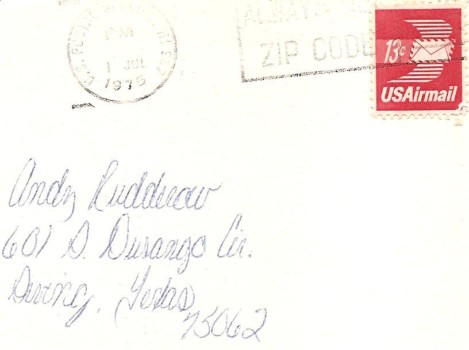 U.S. POSTAL
PM
1 JUL
1975
ALWAYS
ZIP CODE
13c
USAirmail
Andy Rudderow
601 S. Durango Cir.
Irving, Texas
75062